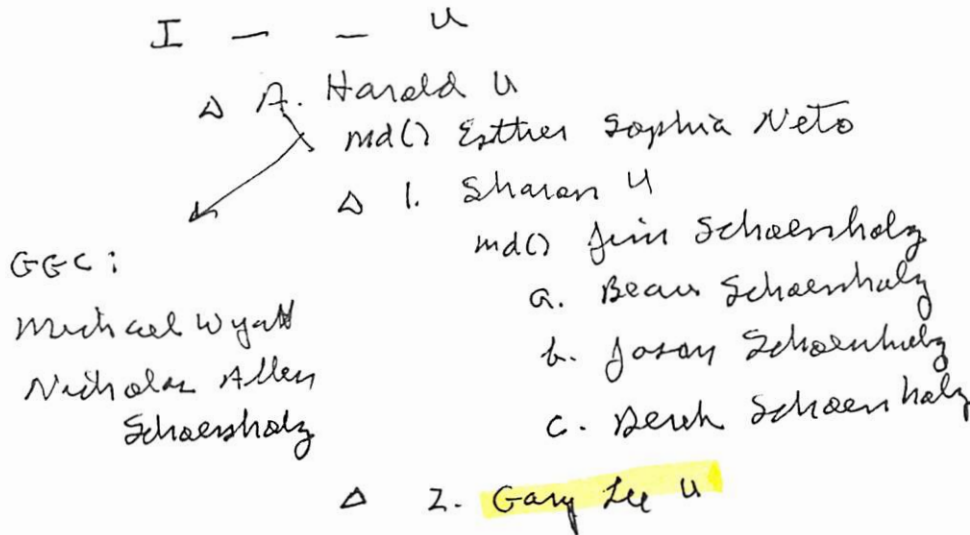 I — — U
Δ A. Harold U
md() Esther Sophia Neto
Δ 1. Sharon U
md() Jim Schoenholz
a. Beau Schoenholz
b. Jason Schoenholz
c. Derek Schoenholz
GGC:
Michael Wyatt
Nicholas Allen
Schoenholz
Δ 2. Gary Lee U